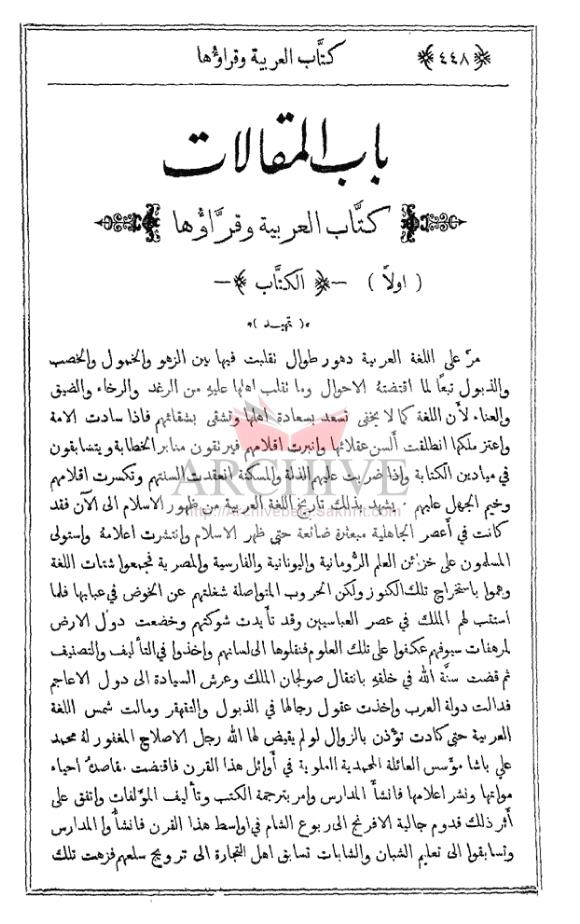 ﴿٤٤٨﴾ كتَّاب العربية وقراؤها
باب المقالات
كتَّاب العربية وقرَّاؤها
( اولاً ) — الكتَّاب —
( تمهيد )
مرَّ على اللغة العربية دهور طوال تقلبت فيها بين الزهو والخمول والخصب
والذبول تبعًا لما اقتضتهُ الاحوال وما تقلب اهلها عليه من الرغد والرخاء والضيق
والعناء لأن اللغة كما لا يخفى تسعد بسعادة اهلها وتشقى بشقائهم فاذا سادت الامة
واعتز ملكها انطلقت ألسن عقلائها وانبرت اقلامهم فيرتقون منابر الخطابة ويتسابقون
في ميادين الكتابة واذا ضربت عليهم الذلة والمسكنة انعقدت السنتهم وتكسرت اقلامهم
وخيم الجهل عليهم . يشهد بذلك تاريخ اللغة العربية من ظهور الاسلام الى الآن فقد
كانت في أعصر الجاهلية مبعثرة ضائعة حتى ظهر الاسلام وانتشرت اعلامهُ واستولى
المسلمون على خزائن العلم الرُّومانية واليونانية والفارسية والمصرية فجمعوا شتات اللغة
وهموا باستخراج تلك الكنوز ولكن الحروب المتواصلة شغلتهم عن الخوض في عبابها فلما
استتب لهم الملك في عصر العباسيين وقد تأيدت شوكتهم وخضعت دول الارض
لمرهفات سيوفهم عكفوا على تلك العلوم فنقلوها الى لسانهم واخذوا في التأليف والتصنيف
ثم قضت سنَّة الله في خلقهِ بانتقال صولجان الملك وعرش السيادة الى دول الاعاجم
فدالت دولة العرب واخذت عقول رجالها في الذبول والتقهقر ومالت شمس اللغة
العربية حتى كادت تؤذن بالزوال لو لم يقيض لها الله رجل الاصلاح المغفور لهُ محمد
علي باشا مؤسس العائلة المحمدية العلوية في أوائل هذا القرن فاقتضت مقاصدُ احياء
مواتها ونشر اعلامها فانشأ المدارس وامر بترجمة الكتب وتأليف المؤلفات واتفق على
أثر ذلك قدوم جالية الافرنج الى ربوع الشام في اواسط هذا القرن فانشأوا المدارس
وتسابقوا الى تعليم الشبان والشابات تسابق اهل التجارة الى ترويج سلعهم فزهت تلك
ARCHIVE
http://Archivebeta.Sakhrit.com